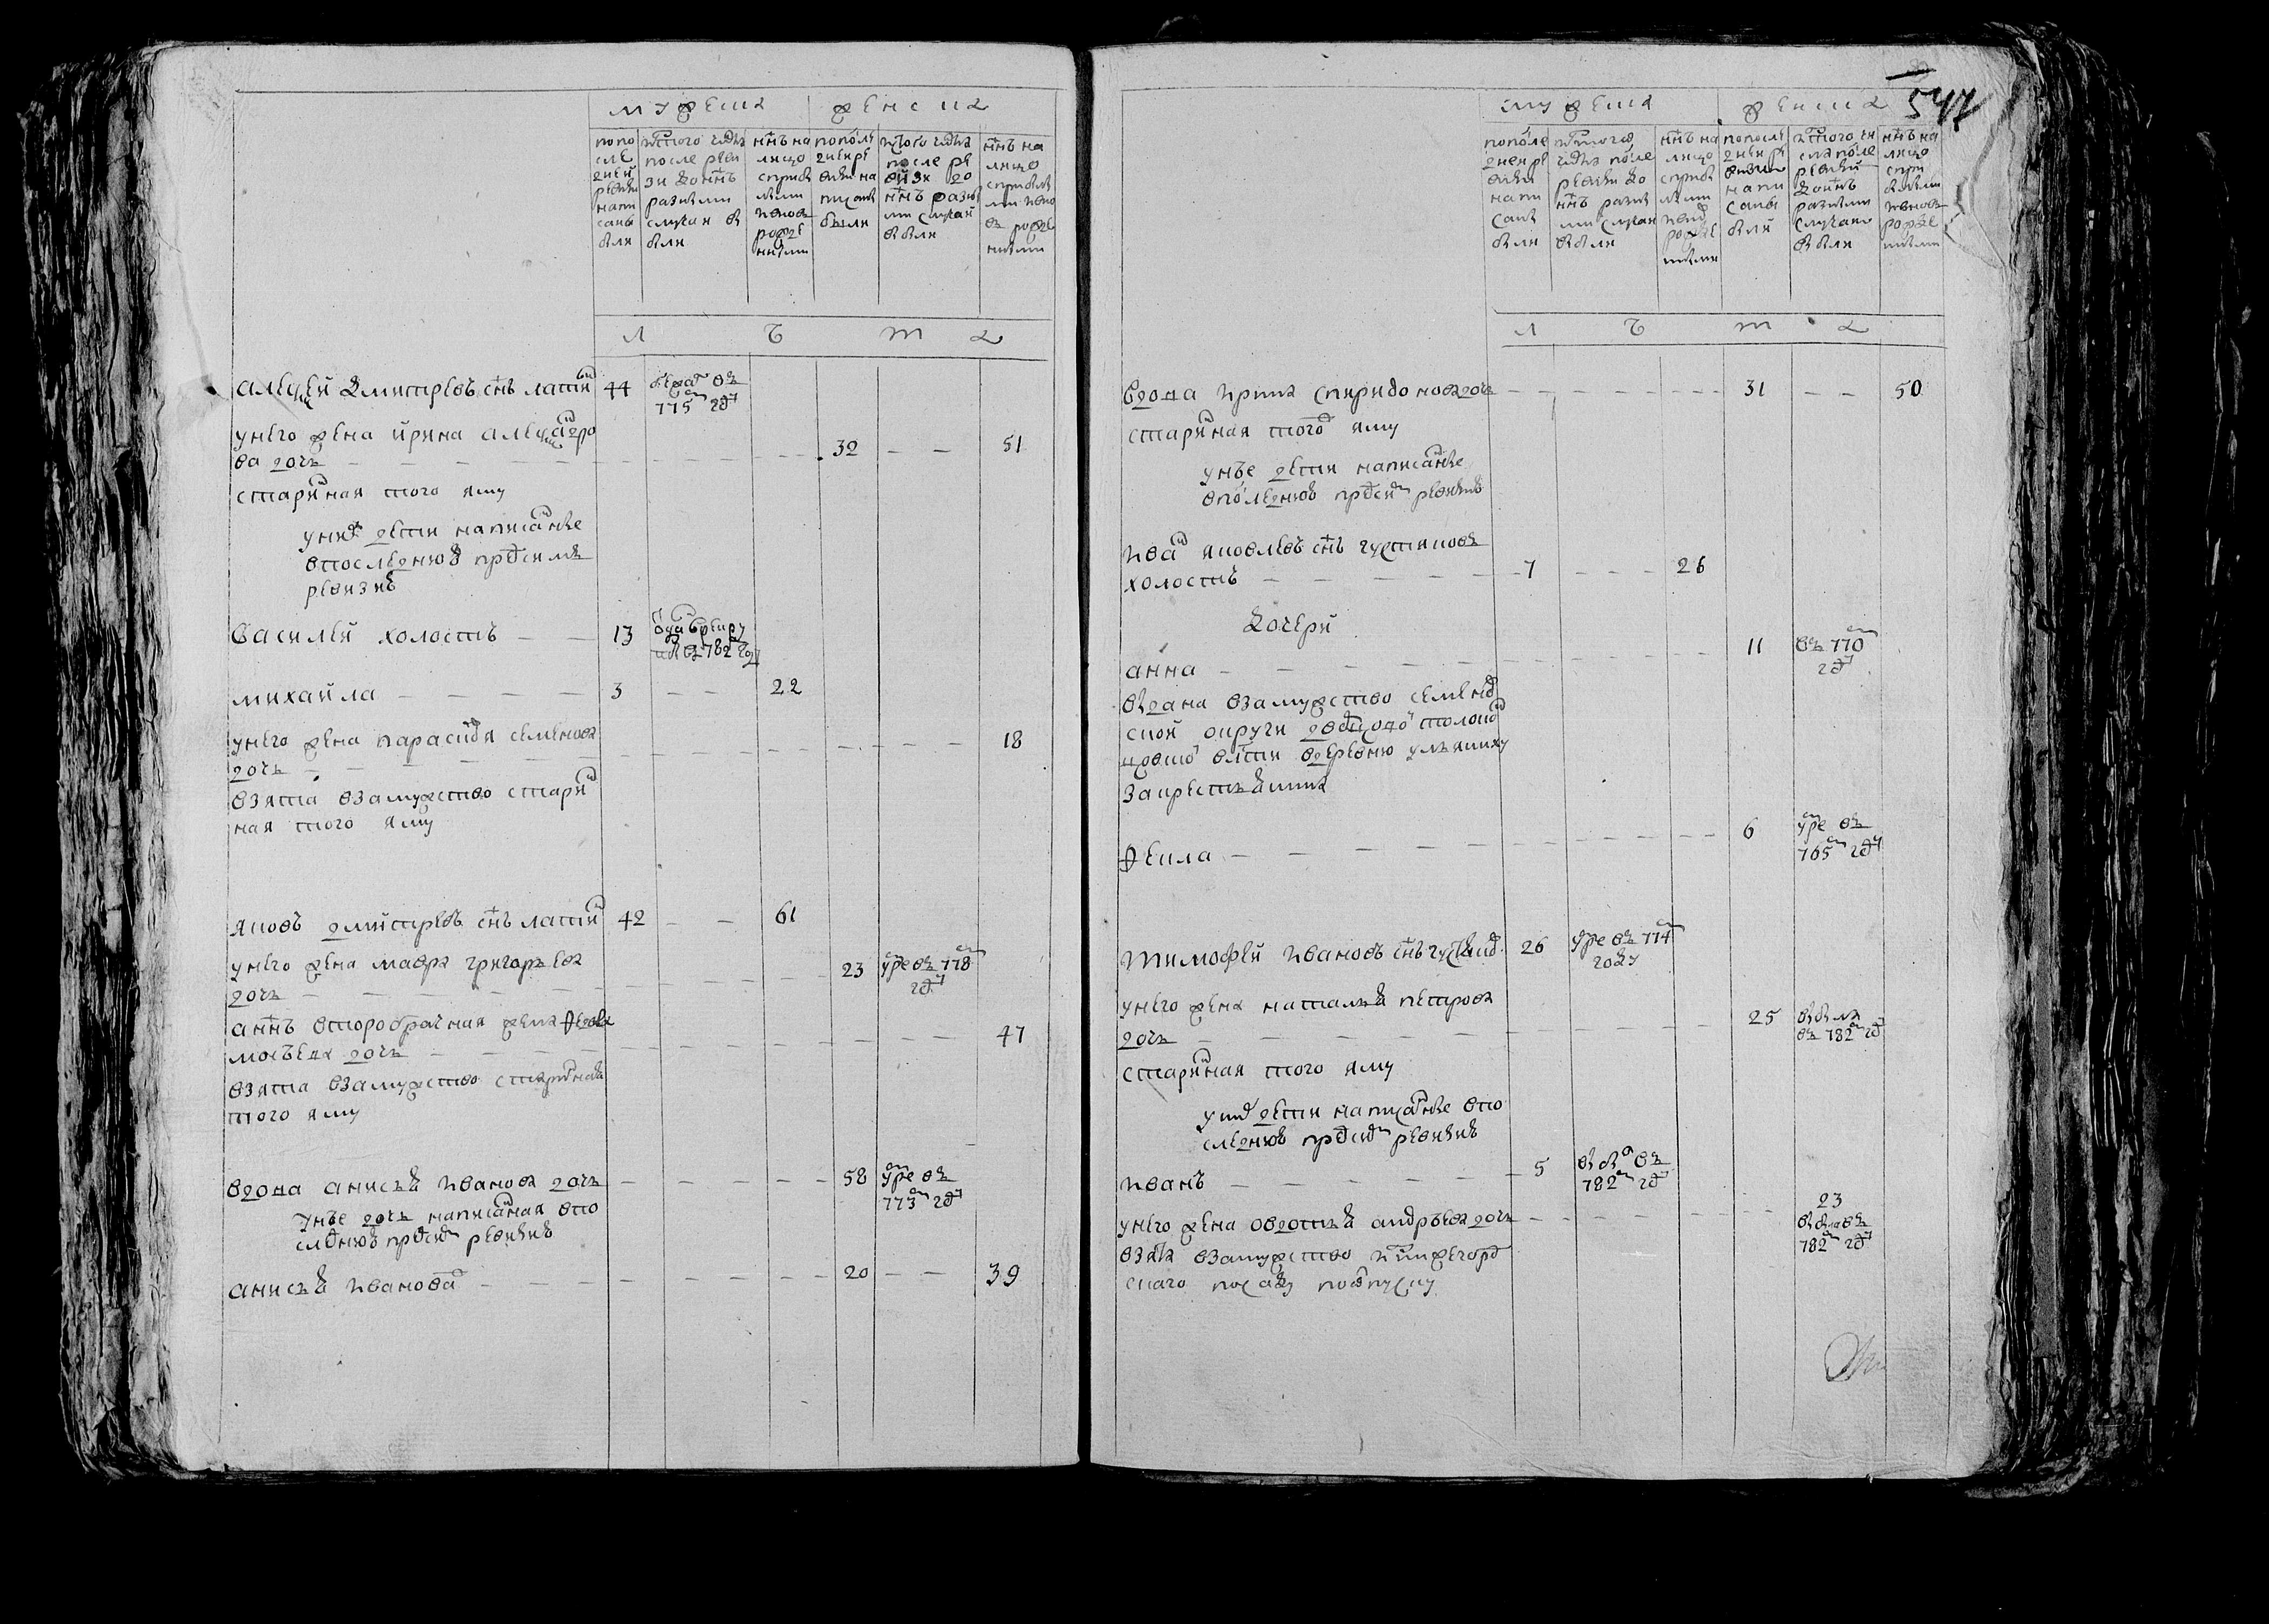 мужеска женска
попо
сле
дней
ревизи
напи
саны
были
ис того числа
после реви
зи до ннѣ
разными
случаи вы
были
ннѣ на
лицо
с прибы
лыми
и внов
рожде
нными
по после
дней ре
визи на
писаны
были
ис того числа
после ре
визи до
ннѣ разны
ми случаи
выбыли
ннѣ на
лицо
с прибылы
ми и вно
вь рожде
нными
л ѣ т а
алексей дмитревъ снъ латкин 44 бежал въ
775м году
у него жена ирина александро
ва дочь 32 51
старинная того яму
у них дети написанные
в последнюю пред сим
ревизию
василей холостъ 13 отдан в рекру
ты въ 782 году
михайла 3 22
у него жена парасковя семенова
дочь 18
взята в замужство старин
ная того яму
яковъ дмитревъ снъ латкин 42 61
у него жена мавра григорьева
дочь 23 умре въ 778м
году
а ннѣ второбрачная жена федора
мосѣева дочь 47
взята в замужство старинная
того яму
вдова анисья иванова дочь 58 умре въ
773м году
у нее дочь написанная в по
следнюю пред сим ревизию
анисья иванова 20 39
547
мужеска женска
по после
дней ре
визи
напи
саны
были
ис того
числа после
ревизи до
ннѣ разны
ми случаи
выбыли
ннѣ на
лицо
с прибы
лыми
и внов
рожде
ными
по после
дней ре
визи
напи
саны
были
ис того чи
сла после
ревизи
до ннѣ
разными
случаи
выбыли
ннѣ на
лицо
с при
былыми
и вновь
рожде
ными
л ѣ т а
вдова ирина спиридонова дочь 31 50
старинная того яму
у нее дети написанные
в последнюю пред сим ревизию
иван яковлевъ снъ густяковъ
холостъ 7 26
дочери
анна 11 въ 770м
году
выдана в замужство семенов
ской округи
волости в деревню ульяниху
за крестьянина
фекла 6 умре въ
765м году
тимофей ивановъ снъ густяков 26 умре въ 774м
году
у него жена наталья петрова
дочь 25 выбыла
въ 782м году
старинная того яму
у них дети написанные в по
следнюю пред сим ревизию
иванъ 5 выбыл въ
782м году
у него жена авдотья андрѣева дочь 23
выбыла въ
782м году
взята в замужство нижегород
скаго посаду по отпуску